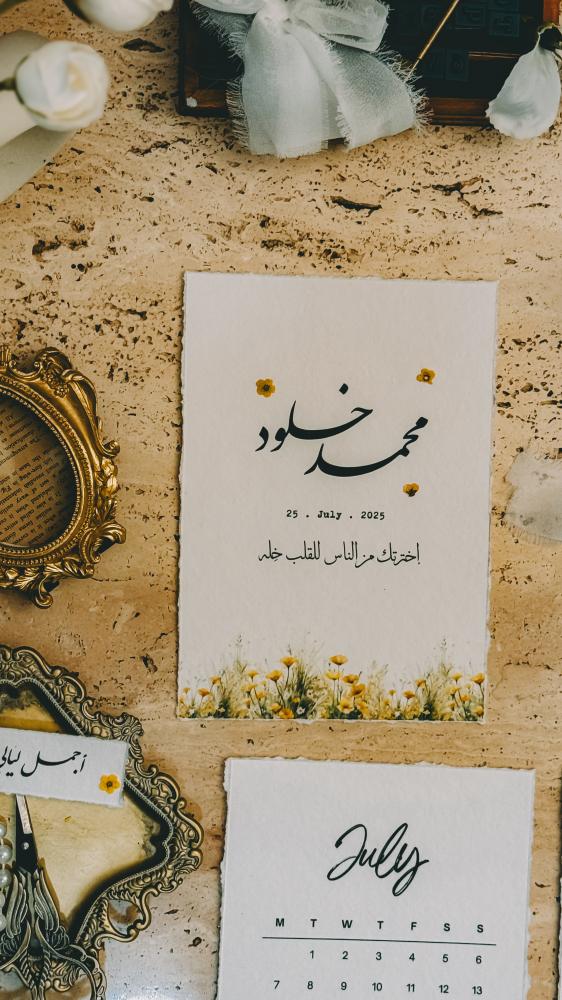 محمد خلود
25 . July . 2025
اخترتك من الناس للقلب خله
أجمل ليالي
July
M T W T F S S
1 2 3 4 5 6
7 8 9 10 11 12 13